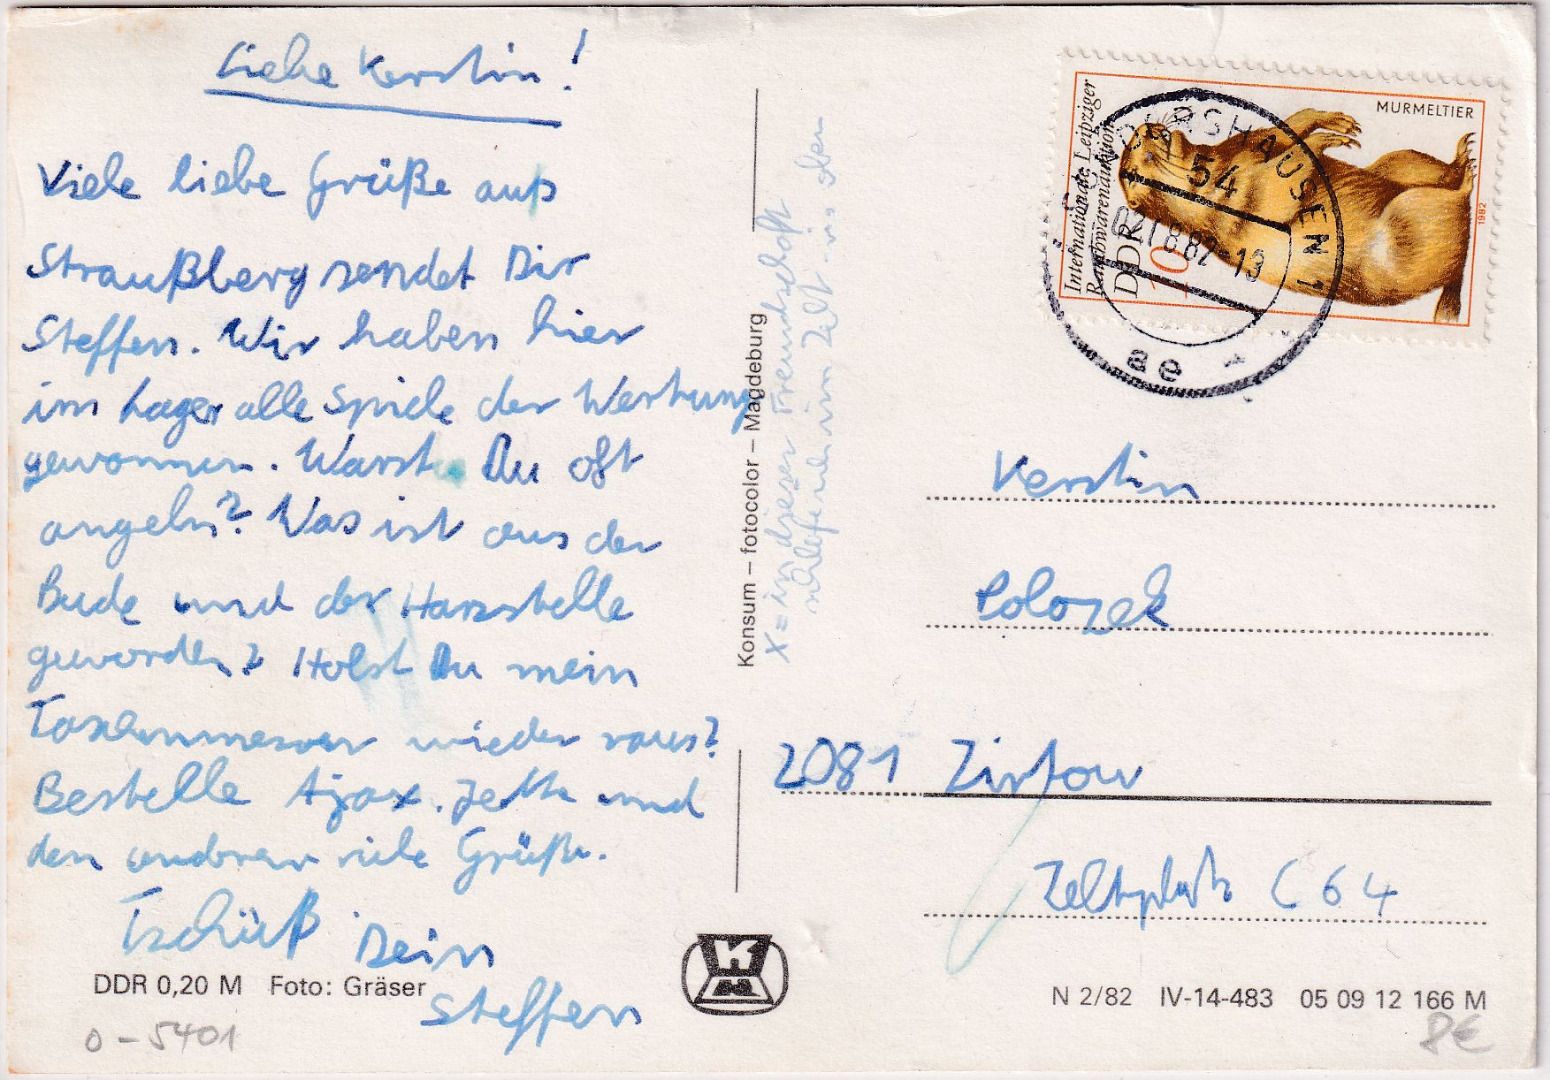 Liebe Kerstin!
Viele liebe Grüße auß
Straußberg sendet Dir
Steffen. Wir haben hier
im Lager alle Spiele der Wertung
gewonnen. Warst Du oft
angeln? Was ist aus der
Bude und der Harzstelle
geworden? Holst Du mein
Taschenmesser wieder raus?
Bestelle Ajax. Jette und
den anderen viele Grüße.
Tschüß Dein
Steffen
DDR 0,20 M Foto: Gräser
0-5401
Konsum – fotocolor – Magdeburg
X = in dieser Freundschaft
schlafen in Zelt
Internationale Leipziger
Rauchwarenauktion
DDR 10
MURMELTIER
1982
SONDERSHAUSEN 1
54
02.8.82-13
ae
Kerstin
Polozek
2081 Zirtow
Zeltplatz C 64
N 2/82 IV-14-483 05 09 12 166 M
8€